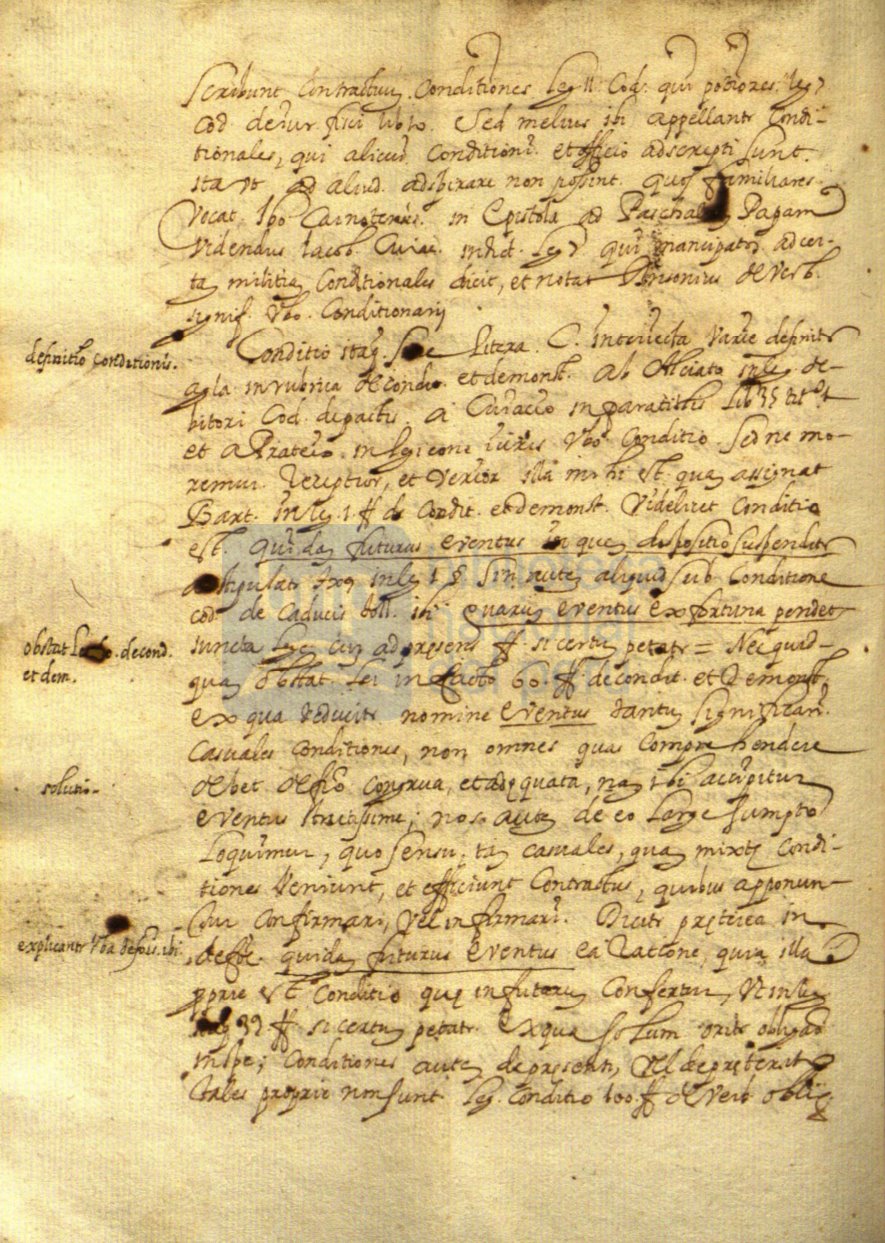 scribunt contractuũ. Conditiones Leg. 11. Cod. qui potiores. leg. 7
Cod. de iur. fisci lib. 10. Sed melius ibi appellantr Condi-
tionales, qui alicui conditioni. et officio adscripti sunt.
ita vt ad aliud. adspirare non possint. quos familiares.
Vocat Ibo Carnotensis. in Epistola ad Paschalem Papam
Videndus Iacob. Cuiac. in dict. leg. 7 qui mancipator. ad cer-
tam militiam Conditionales dicit, et notat Brisonius de verb.
signif. Vbo. Conditionarij
definitio conditionis.
Conditio itaq. sine litera. C. interiecta varie definitr
a gla. in rubrica de condi. et demonst. ab Alciato in leg. de-
bitori Cod. de pactis. a Cuiacio in paratitlis Lib 35 tit.
et a Prateio. in lexicone iuris Vbo Conditio. Sed ne mo-
remur. receptior, et verior illa mihi est. quam assignat
Bart. in leg. 1. ff de Condit. et demonst. Videlicet Conditio
est. quidam futurus eventus in quem dispositio suspenditr
in leg. 1 § sin autem aliquid sub Conditione
cod. de Caducis toll. ibi quarum eventus ex fortuna pendet
iuncta leg. cum ad præsens ff. si certum petatr = Nec quid-
obstat de cond.
et dem.
quam obstat. lex in facto 60. ff. de condit. et Demonst.
ex qua deducitr nomine eventus tantum significari.
Casuales conditiones, non omnes quas comprehendere
solutio.
debet defio congrua, et adæquata, nam ibi accipitur
eventus strictissime; nos autem de eo large sumpto
loquimur, quo sensu, tam casuales, quam mixtæ condi-
tiones veniunt, et efficiunt contractus, quibus apponun-
tur confirmari, vel infirmari. Dicitr præterea in
explicantr Vba defois. ibi.
deffe. quidam futurus eventus ea ratione, quia illa
pprie est Conditio quæ in futurum confertur, vt in leg.
39 ff si certum petatr. Ex qua solum oritr obligaō
in spe; Conditiones autem de præsenti, vel de præterito
tales proprie non sunt. Leg. Conditio 100. ff de verb. oblig.